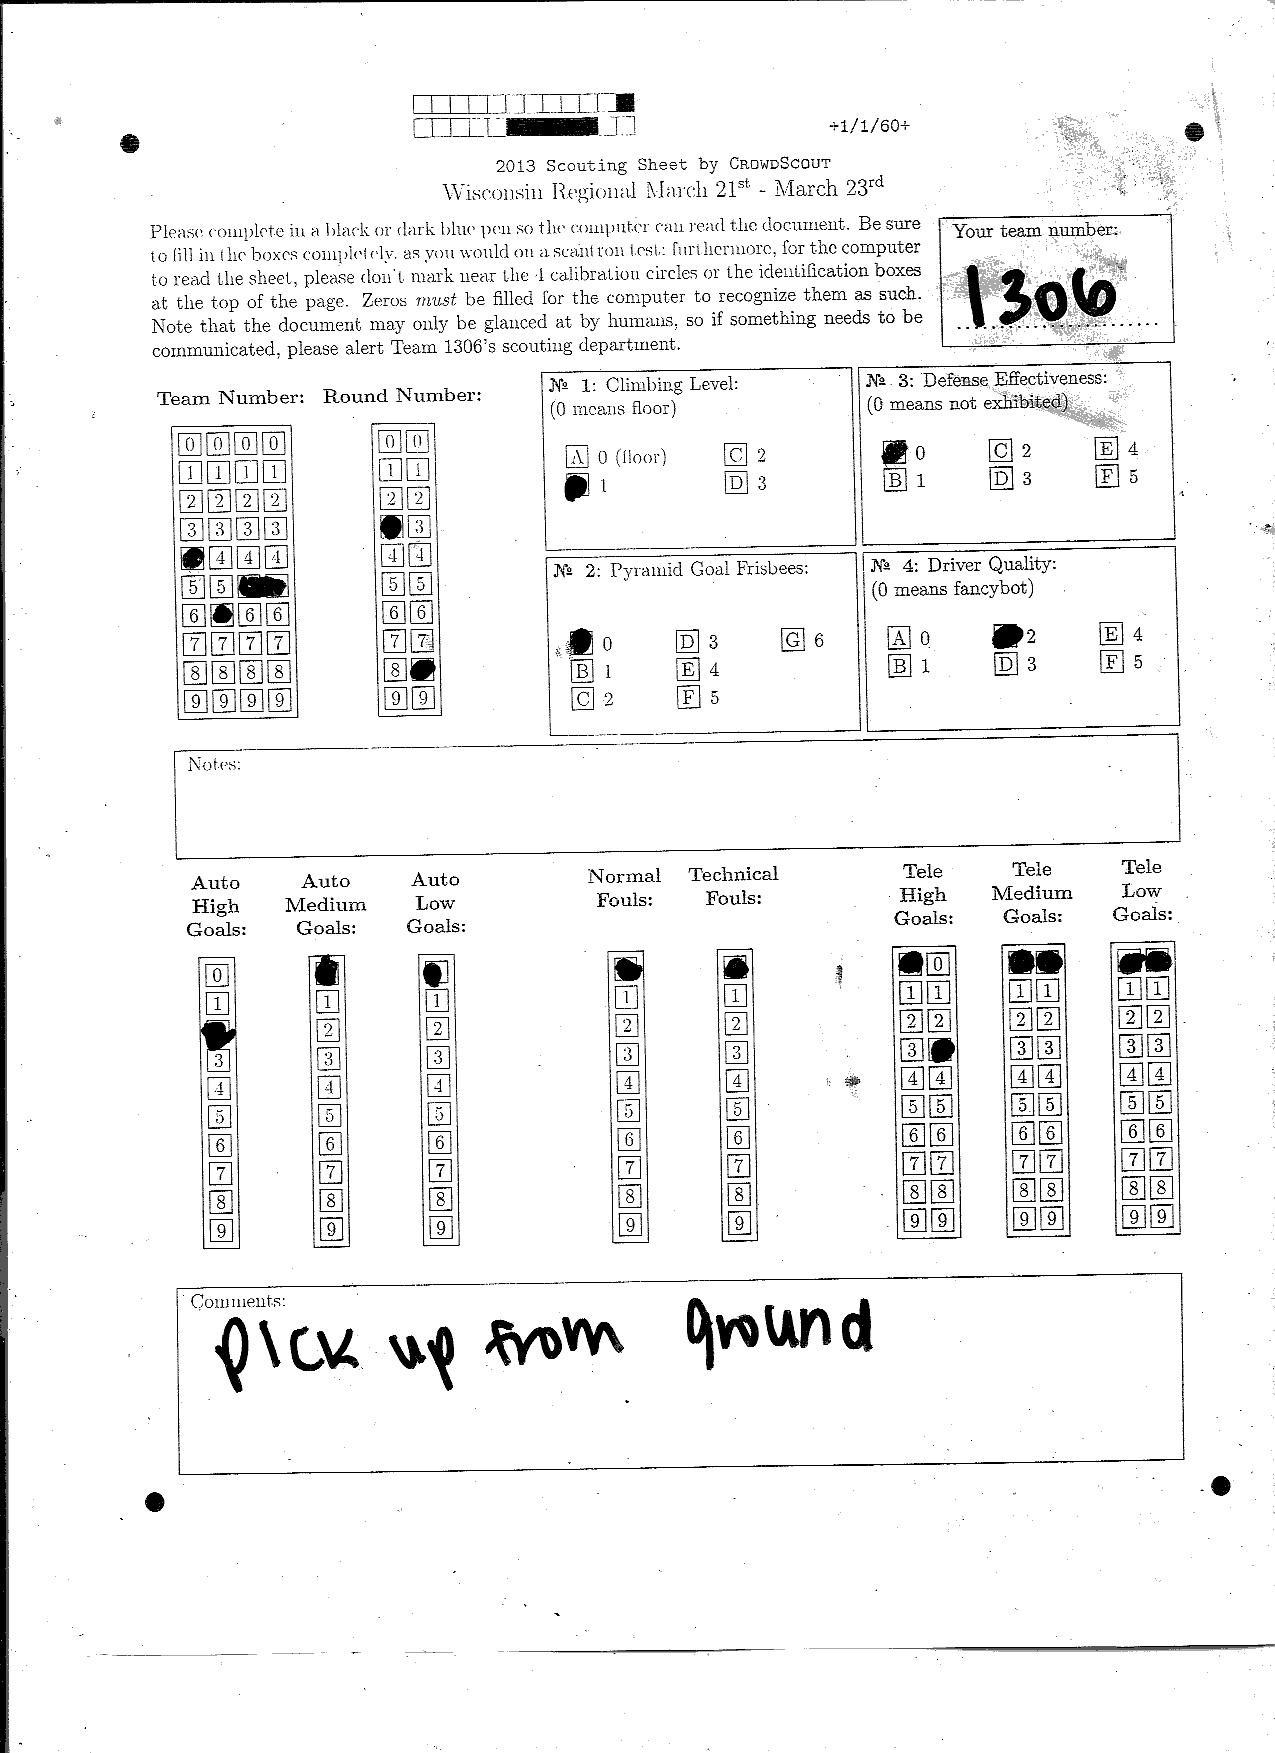 ÷1/1/60÷
2013 Scouting Sheet by CROWDSCOUT
Wisconsin Regional March 21st - March 23rd
Please complete in a black or dark blue pen so the computer can read the document. Be sure
to fill in the boxes completely, as you would on a scantron test; furthermore, for the computer
to read the sheet, please don't mark near the 4 calibration circles or the identification boxes
at the top of the page. Zeros must be filled for the computer to recognize them as such.
Note that the document may only be glanced at by humans, so if something needs to be
communicated, please alert Team 1306's scouting department.
Your team number:
1306
Team Number: Round Number:
0 0 0 0 0 0
1 1 1 1 1 1
2 2 2 2 2 2
3 3 3 3 3
4 4 4 4 4
5 5 5 5
6 6 6 6 6
7 7 7 7 7 7
8 8 8 8 8
9 9 9 9 9 9
№ 1: Climbing Level:
(0 means floor)
A 0 (floor) C 2
1 D 3
№ 3: Defense Effectiveness:
(0 means not exhibited)
0 C 2 E 4
B 1 D 3 F 5
№ 2: Pyramid Goal Frisbees:
0 D 3 G 6
B 1 E 4
C 2 F 5
№ 4: Driver Quality:
(0 means fancybot)
A 0 2 E 4
B 1 D 3 F 5
Notes:
Auto High Goals: Auto Medium Goals: Auto Low Goals: Normal Fouls: Technical Fouls: Tele High Goals: Tele Medium Goals: Tele Low Goals:
0 0
1 1 1 1 1 1 1 1 1 1 1
2 2 2 2 2 2 2 2 2 2
3 3 3 3 3 3 3 3 3 3
4 4 4 4 4 4 4 4 4 4 4
5 5 5 5 5 5 5 5 5 5 5
6 6 6 6 6 6 6 6 6 6 6
7 7 7 7 7 7 7 7 7 7 7
8 8 8 8 8 8 8 8 8 8 8
9 9 9 9 9 9 9 9 9 9 9
Comments:
pick up from ground